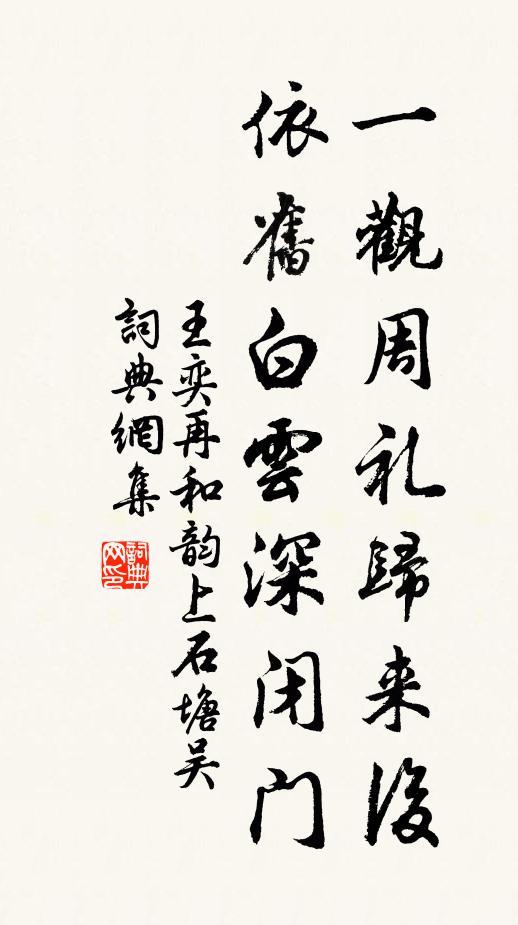 一觀周礼歸来後
依舊白雲深闭门
王奕再和韵上石塘吴
詞典網集
詞典网印